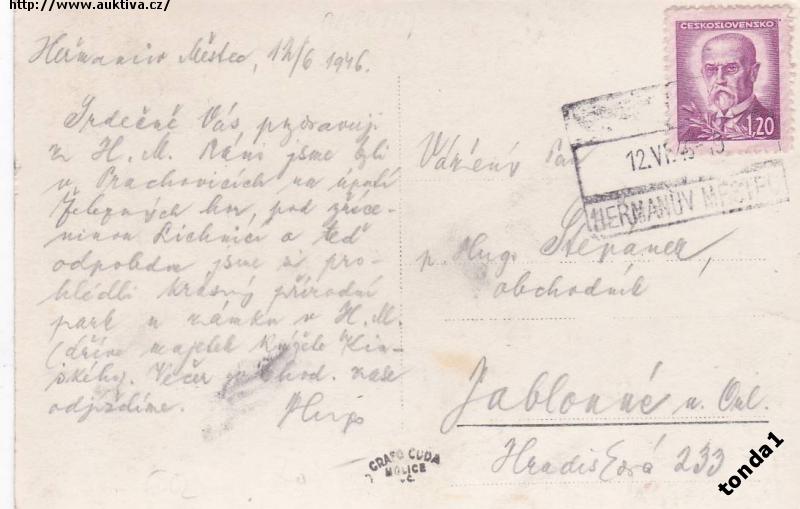 http://www.auktiva.cz/
Heřmanův Městec, 12/6 1946.
Srdečně Vás pozdravuji
z H. M. Ráno jsme byli
v Prachovicích na úpatí
Železných hor, pod zříce-
ninou Lichnicí a teď
odpoledne jsme si pro-
hlédli krásný přírodní
park u zámku v H. M.
(dříve majetek knížete Kin-
ského). Večer ve hod. zase
odjíždíme.
ČESKOSLOVENSKO
1,20
12.VI.46
HEŘMANŮV MĚSTEC
Vážený Pan
p. Hugo Štěpánek,
obchodník
Jablonné n. Orl.
Hradišťská 233
GRAFO ČUDA
HOLICE
tonda1